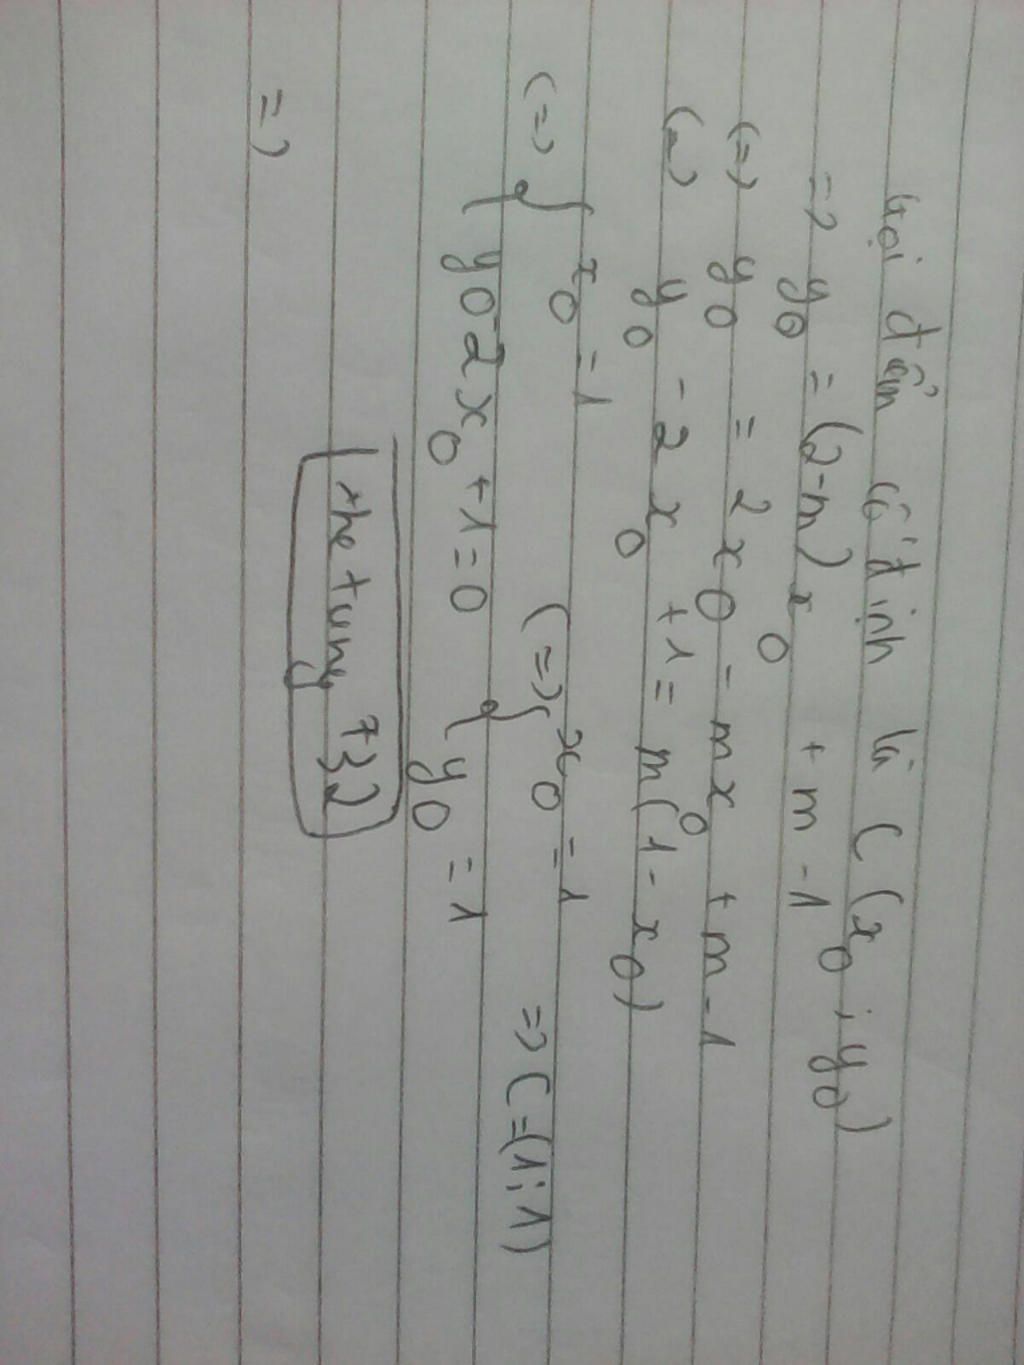 Gọi điểm cố định là C (x0; y0)
=> y0 = (2-m) x0 + m - 1
(=) y0 = 2x0 - mx0 + m - 1
(=) y0 - 2x0 + 1 = m(1 - x0)
(=> { x0 = 1 (=> { x0 = 1 => C = (1; 1)
y0 - 2x0 + 1 = 0 y0 = 1
the tung 732
=)